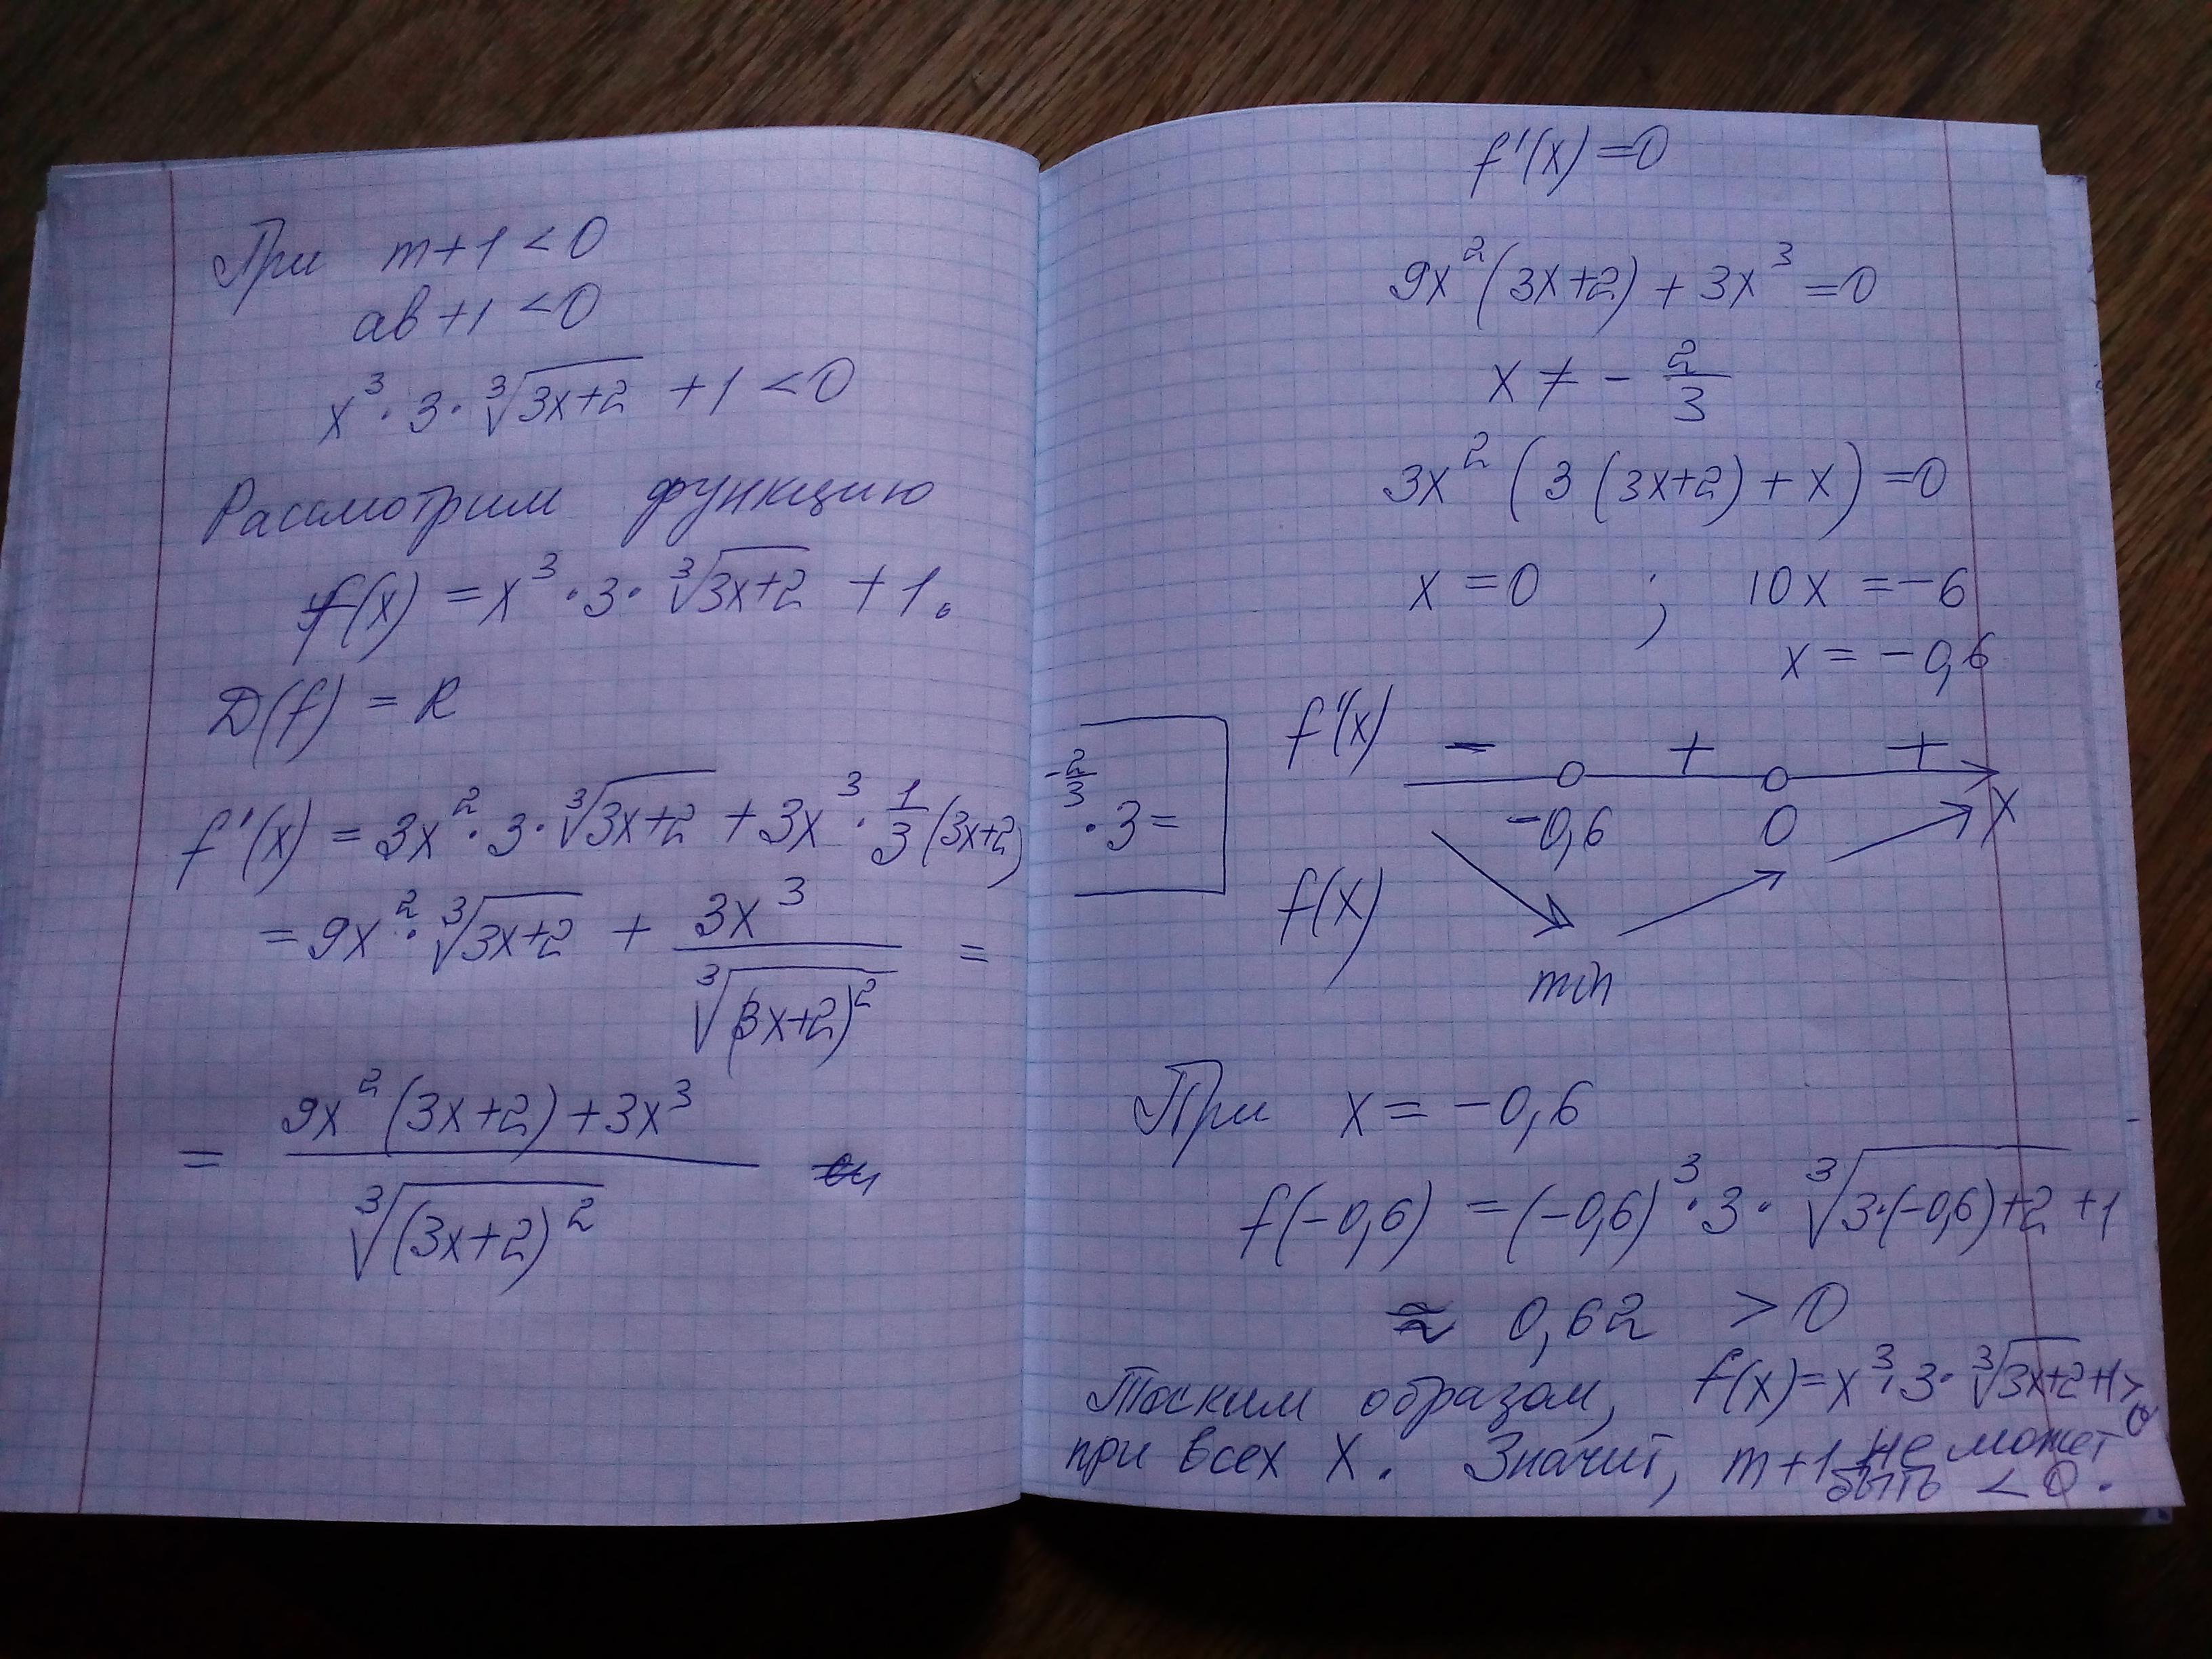 При m+1 <0
ab+1 <0
x³·3·∛(3x+2) +1 <0
Рассмотрим функцию
f(x) = x³·3·∛(3x+2) +1.
D(f) = R
f'(x) = 3x²·3·∛(3x+2) + 3x³·1/3(3x+2)^(-2/3)·3=
= 9x²·∛(3x+2) + 3x³/∛((3x+2)²) =
= (9x²(3x+2)+3x³)/∛((3x+2)²)
f'(x)=0
9x²(3x+2) + 3x³ =0
x ≠ - 2/3
3x²(3(3x+2)+x) =0
x =0 ; 10x =-6
x = -0,6
f'(x) - + +
-0,6 0 x
f(x)
min
При x= -0,6
f(-0,6) = (-0,6)³·3·∛(3·(-0,6)+2) +1
≈ 0,62 >0
Таким образом, f(x)=x³·3·∛(3x+2)+1>0
при всех x. Значит, m+1 не может
быть <0.